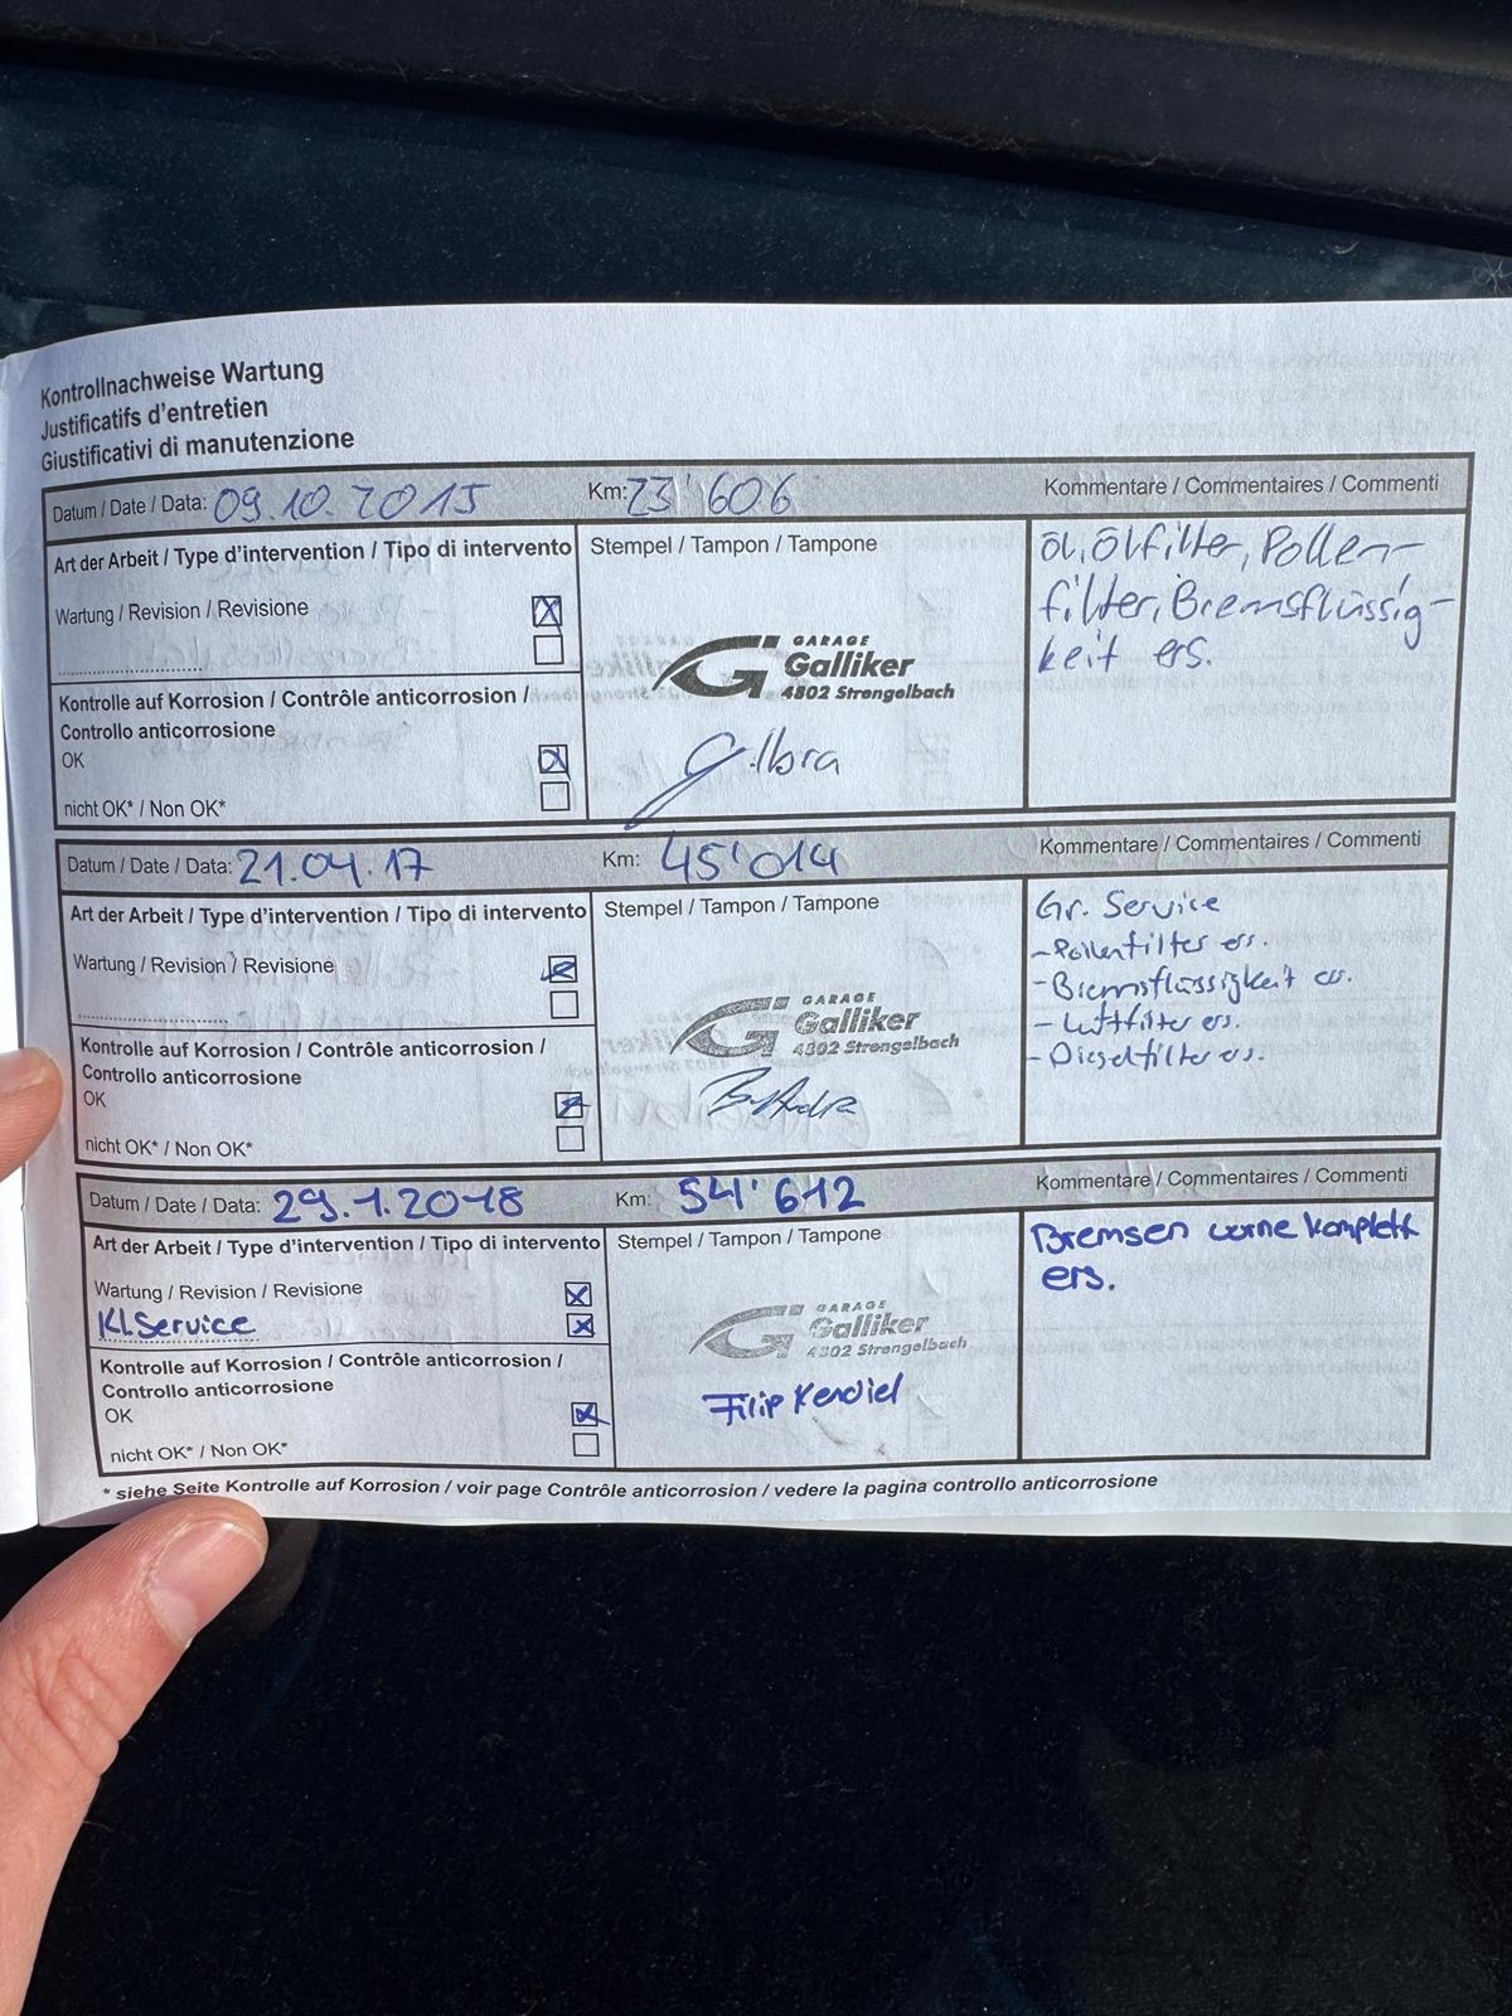 Kontrollnachweise Wartung
Justificatifs d'entretien
Giustificativi di manutenzione
Datum / Date / Data: 09.10.2015 Km: 23'606 Kommentare / Commentaires / Commenti
Art der Arbeit / Type d'intervention / Tipo di intervento
Stempel / Tampon / Tampone
Öl, Ölfilter, Pollen-
filter, Bremsflüssig-
keit ers.
Wartung / Revision / Revisione
GARAGE
Galliker
4802 Strengelbach
Kontrolle auf Korrosion / Contrôle anticorrosion /
Controllo anticorrosione
OK
nicht OK* / Non OK*
Datum / Date / Data: 21.04.17 Km: 45'014 Kommentare / Commentaires / Commenti
Art der Arbeit / Type d'intervention / Tipo di intervento
Stempel / Tampon / Tampone
Gr. Service
- Pollenfilter ers.
- Bremsflüssigkeit ers.
- Luftfilter ers.
- Dieselfilter ers.
Wartung / Revision / Revisione
GARAGE
Galliker
4802 Strengelbach
Kontrolle auf Korrosion / Contrôle anticorrosion /
Controllo anticorrosione
OK
nicht OK* / Non OK*
Datum / Date / Data: 29.1.2018 Km: 54'612 Kommentare / Commentaires / Commenti
Art der Arbeit / Type d'intervention / Tipo di intervento
Stempel / Tampon / Tampone
Bremsen vorne komplett
ers.
Wartung / Revision / Revisione
Kl.Service
GARAGE
Galliker
4802 Strengelbach
Filip
Kontrolle auf Korrosion / Contrôle anticorrosion /
Controllo anticorrosione
OK
nicht OK* / Non OK*
* siehe Seite Kontrolle auf Korrosion / voir page Contrôle anticorrosion / vedere la pagina controllo anticorrosione